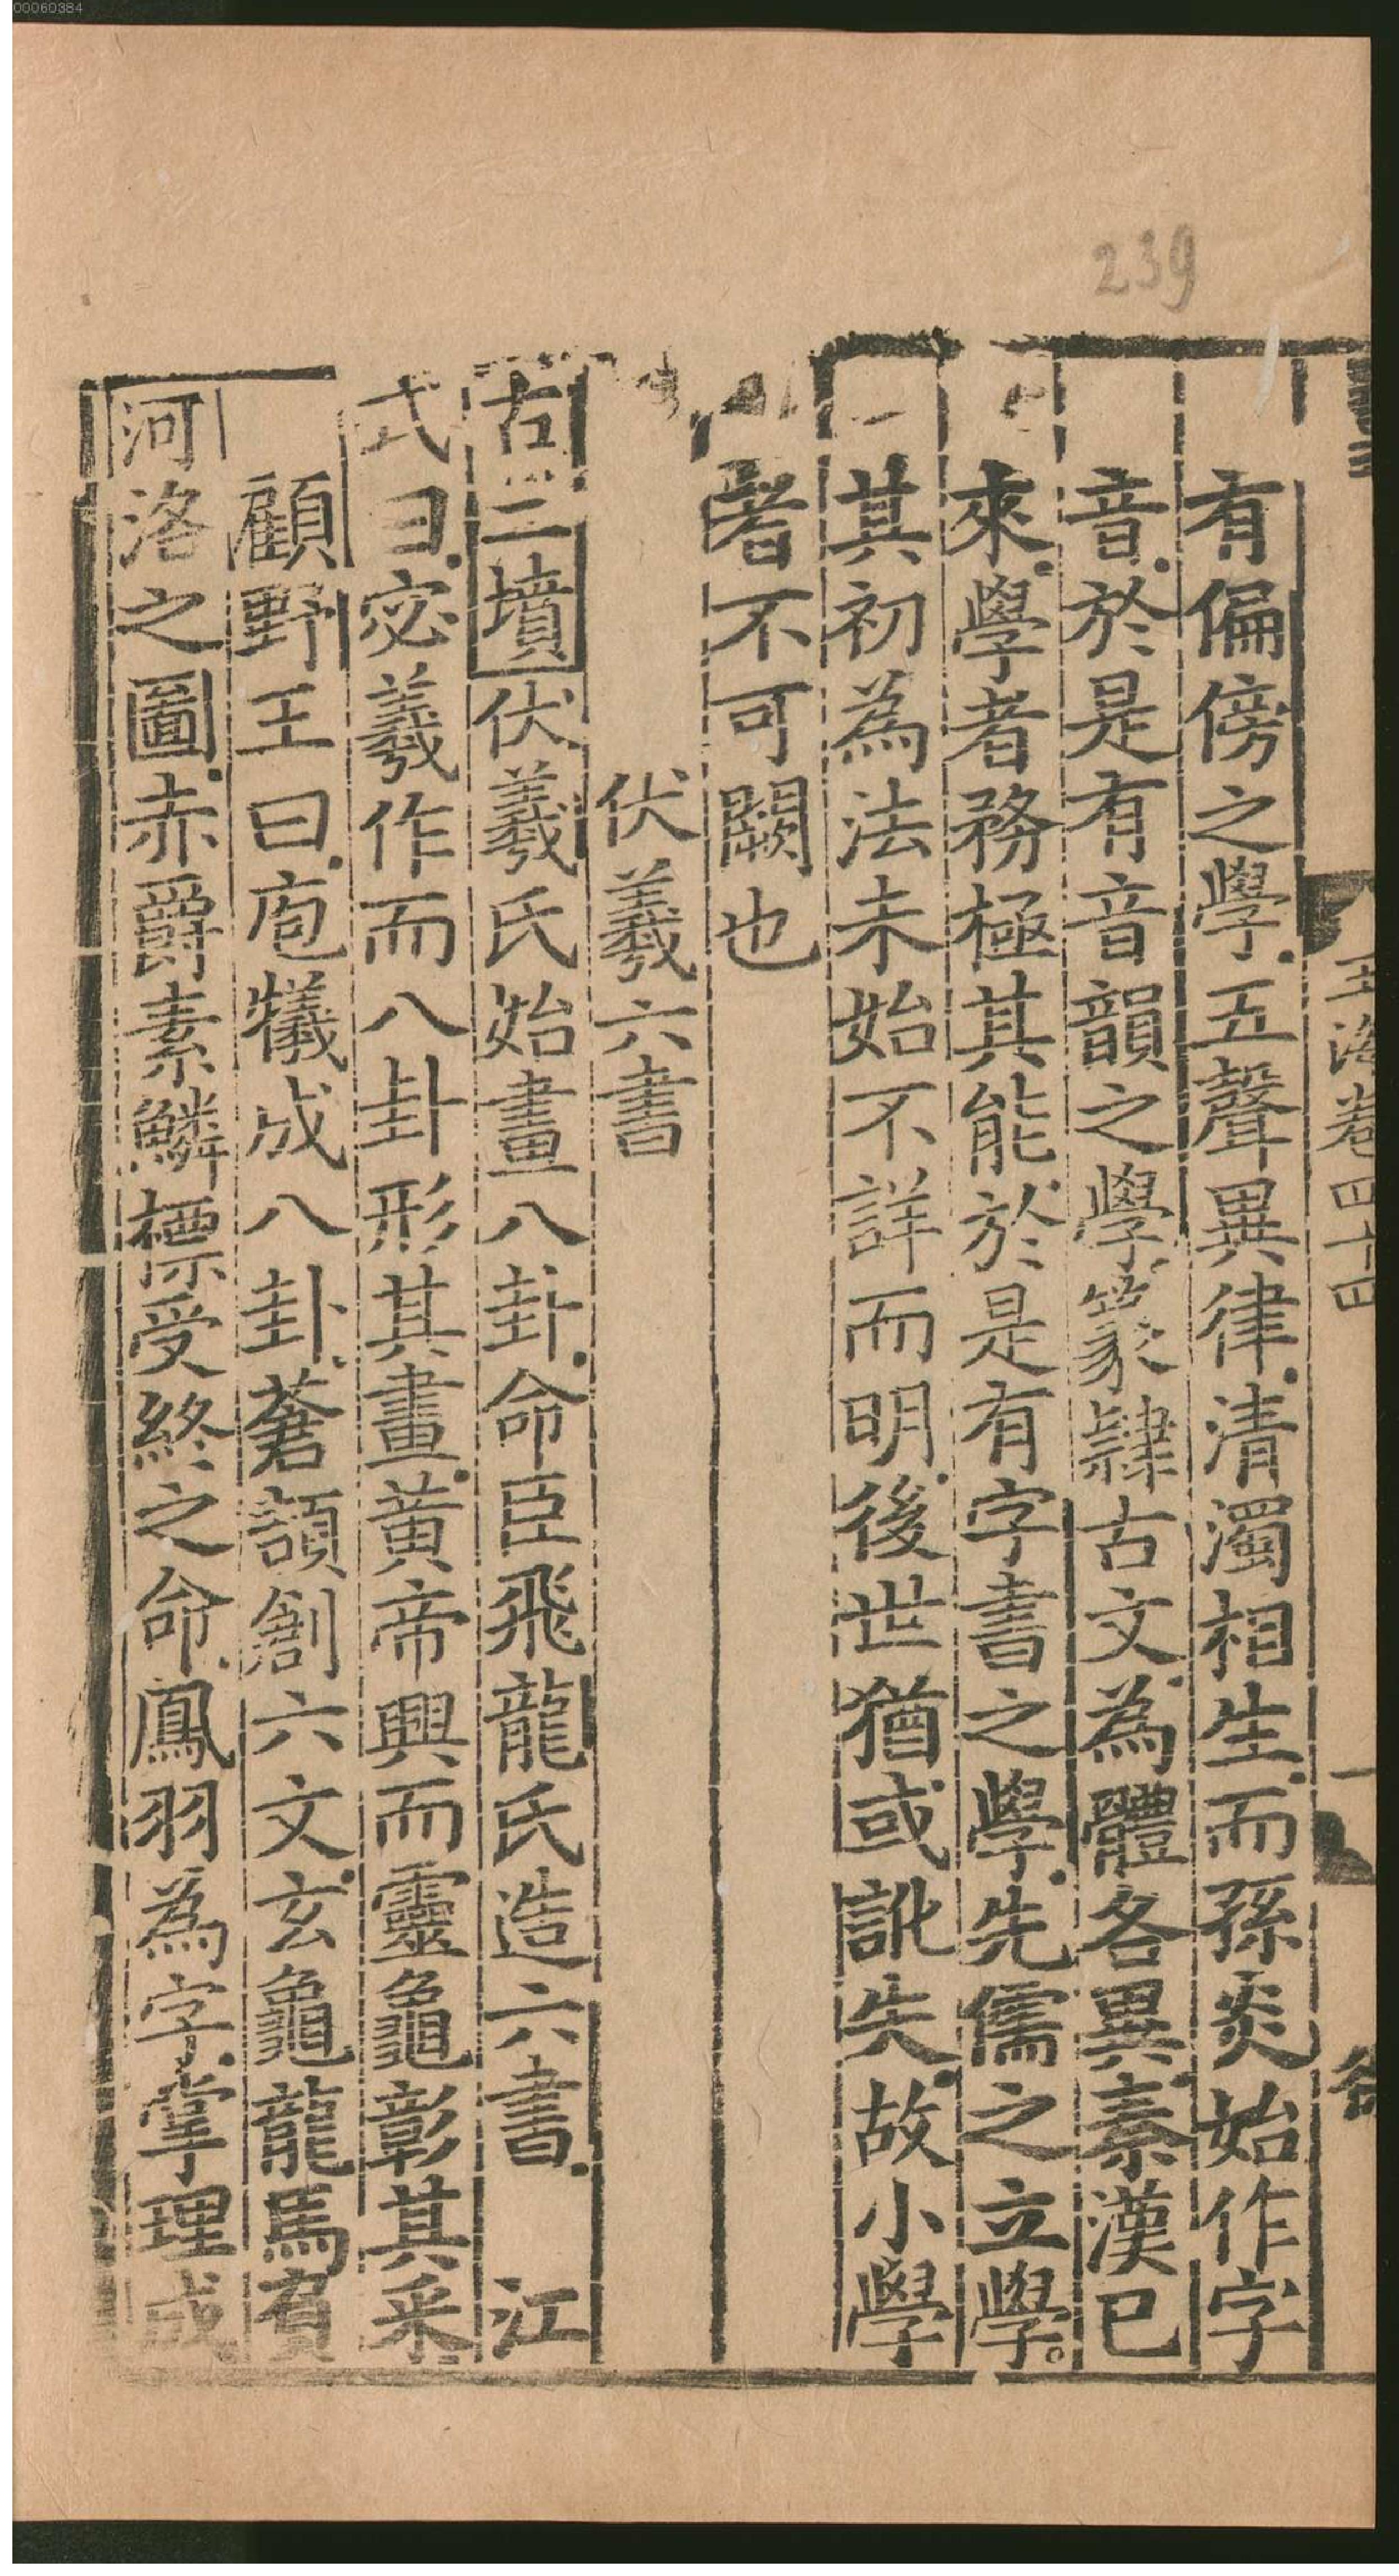 00060384
239
玉海卷四十四
一
有偏傍之學五聲異律清濁相生而孫炎始作字
音於是有音韻之學篆隸古文為體各異秦漢已
來學者務極其能於是有字書之學先儒之立學
其初為法未始不詳而明後世猶或訛失故小學
者不可闕也
伏羲六書
古三墳伏羲氏始畫八卦命臣飛龍氏造六書 江
式曰宓羲作而八卦形其畫黄帝興而靈龜彰其采
顧野王曰庖犧成八卦蒼頡創六文玄龜龍馬負
河洛之圖赤爵素鱗摽受終之命鳳羽為字掌理成